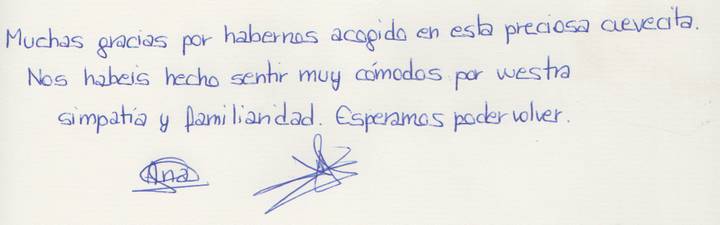 Muchas gracias por habernos acogido en esta preciosa cuevecita.
Nos habeis hecho sentir muy cómodos por vuestra
simpatía y familiaridad. Esperamos poder volver.
Ana